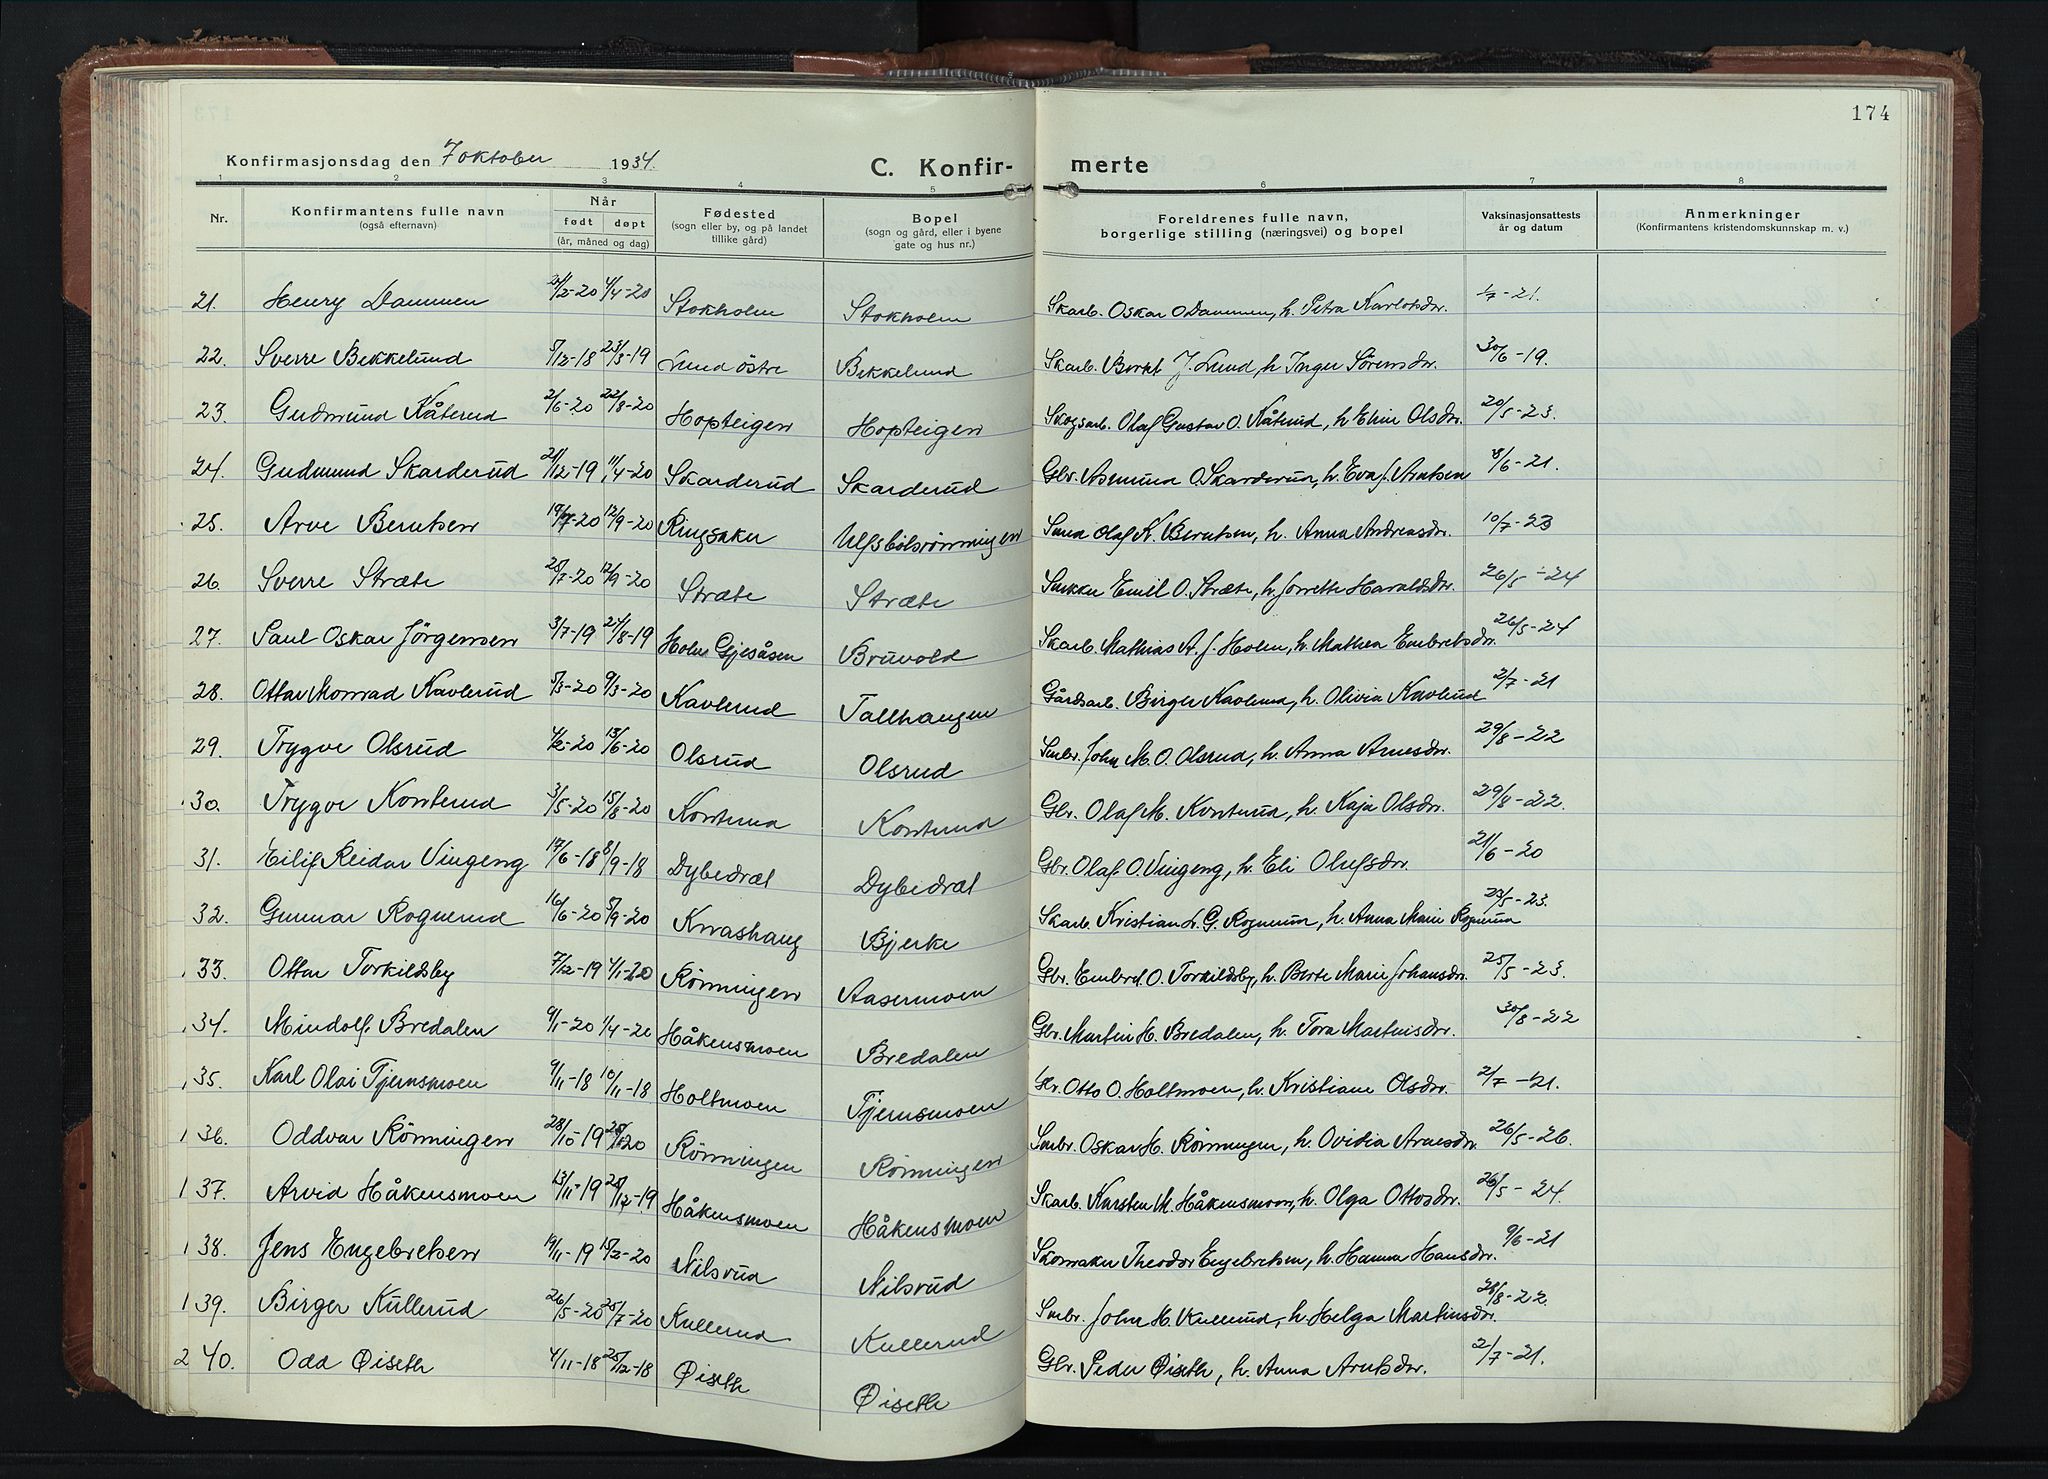 174
Konfirmasjonsdag den 7 oktober 1934. C. Konfir- merte
1 2 3 4 5 6 7 8
Nr. Konfirmantens fulle navn (også efternavn) Når født døpt (år, måned og dag) Fødested (sogn eller by, og på landet tillike gård) Bopel (sogn og gård, eller i byene gate og hus nr.) Foreldrenes fulle navn, borgerlige stilling (næringsvei) og bopel Vaksinasjonsattests år og datum Anmerkninger (Konfirmantens kristendomskunnskap m. v.)
21. Henry Dammen 4/4-20 Stokholm Stokholm Skarb. Oskar O Dammen, h. Petra Karlotsdr. 1/7-21.
22. Sverre Bekkelund 5/12-18 23/3-19 Lund östre Bekkelund Skarb. Bernt J. Lund, h Inger Sörensdr. 30/6-19.
23. Gudmund Kåterud 2/6-20 22/8-20 Hopteigen Hopteigen Skogsarb. Olaf Gustav O. Kåterud, h Elin Olsdr. 20/5-23.
24. Gudmund Skarderud 21/12-19 11/4-20 Skarderud Skarderud Gbr. Asmund O Skarderud, h. Eva J. Arntsen 8/6-21.
25. Arve Berntsen 19/7-20 12/9-20 Ringsaker Ulfsbölrönningen Smed Olaf K. Berntsen, h. Anna Andreasdr. 10/7-23
26. Sverre Stræte 28/7-20 12/9-20 Stræte Stræte Snekker Emil O. Stræte, h. Jorette Haraldsdr. 26/5-24
27. Paul Oskar Jörgensen 3/7-19 24/8-19 Holm Gjesåsen Bruvold Skarb. Mathias A. J. Holen, h. Mathea Embretsdr. 26/5-24
28. Ottar Monrad Kavlerud 5/3-20 9/3-20 Kavlerud Tallhaugen Gårdsarb. Birger Kavlerud, h. Olivia Kavlerud 2/7-21
29. Trygve Olsrud 4/2-20 13/6-20 Olsrud Olsrud Smbr. John M. O. Olsrud, h. Anna Arnesdr. 29/8-22
30. Trygve Konterud 3/5-20 15/8-20 Konterud Konterud Gbr. Olaf M. Konterud, h. Kaja Olsdr. 29/8-22.
31. Eilif Reidar Vingeng 17/6-18 8/9-18 Dybedræt Dybedræt Gbr. Olaf O. Vingeng, h. Eli Olufsdr. 21/6-20
32. Gunnar Rognerud 16/6-20 5/9-20 Kvashaug Bjerke Skarb. Kristian G. Rognerud, h. Anna Marie Rognerud 23/5-23.
33. Ottar Torkildsby 7/12-19 4/1-20 Rönningen Aasermoen Gbr. Embret O. Torkildsby, h. Berte Marie Johansdr. 25/5-23.
34. Mindolf Bredalen 9/1-20 1/4-20 Håkensmoen Bredalen Gbr. Martin H. Bredalen, h. Tora Martinsdr. 30/8-22
35. Karl Olai Tjernsmoen 9/11-18 10/11-18 Holtmoen Tjernsmoen Gbr. Otto O. Holtmoen, h. Kristiane Olsdr. 2/7-21.
1 36. Oddvar Rönningen 28/10-19 Rönningen Rönningen Smbr. Oskar H. Rönningen, h. Ovidia Arnesdr. 26/5-26.
1 37. Arvid Håkensmoen 13/11-19 28/12-19 Håkensmoen Håkensmoen Skarb. Karsten M. Håkensmoen, h. Olga Ottosdr. 26/5-24.
1 38. Jens Engebretsen 19/11-19 15/2-20 Nilsrud Nilsrud Skomaker Theodor Engebretsen, h. Hanna Hansdr. 9/6-21
1 39. Birger Kullerud 26/5-20 25/7-20 Kullerud Kullerud Smbr. John H. Kullerud, h. Helga Martinsdr. 28/8-22.
2 40. Odd Øiseth 4/11-18 25/12-18 Øiseth Øiseth Gbr. Peder Øiseth, h. Anna Arntsdr. 2/7-21.